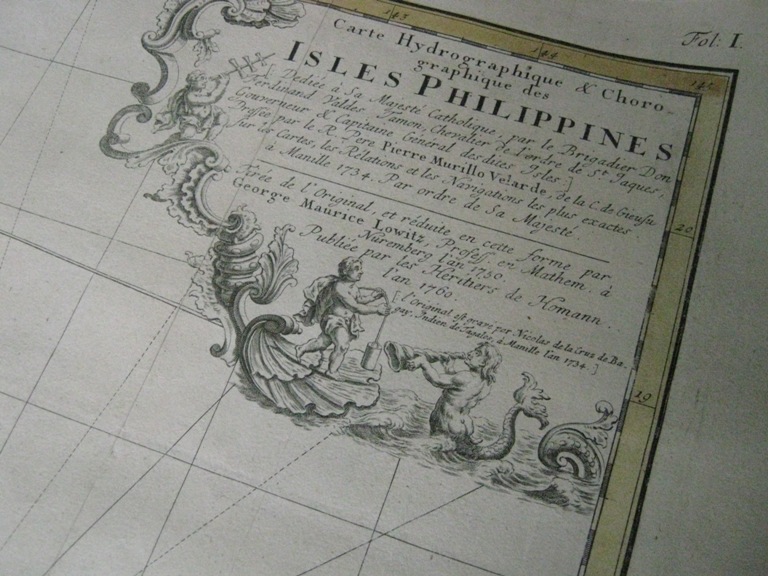 143
144
145
Fol: I.
Carte Hydrographique & Choro
graphique des
ISLES PHILIPPINES
[ Dediée à Sa Majesté Catholique, par le Brigadier Don
Ferdinand Valdes Tamon, Chevalier de l'ordre de St. Jaques,
Gouverneur & Capitaine General des dites Isles ]
Dressée par le R. Pere Pierre Murillo Velarde, de la C. de Giesusu
sur les Cartes, les Relations et les Navigations les plus exactes.
à Manille 1734. Par ordre de Sa Majesté.
Tirée de l'Original, et réduite en cette forme par
George Maurice Lowitz, Profess. en Mathem à
Nuremberg l'an 1750.
Publiée par les Héritiers de Homann.
l'an 1760.
[ l'Original est gravé par Nicolas de la Cruz de Ba-
gay, Indien de Tagalos, à Manille l'an 1734. ]
20
19